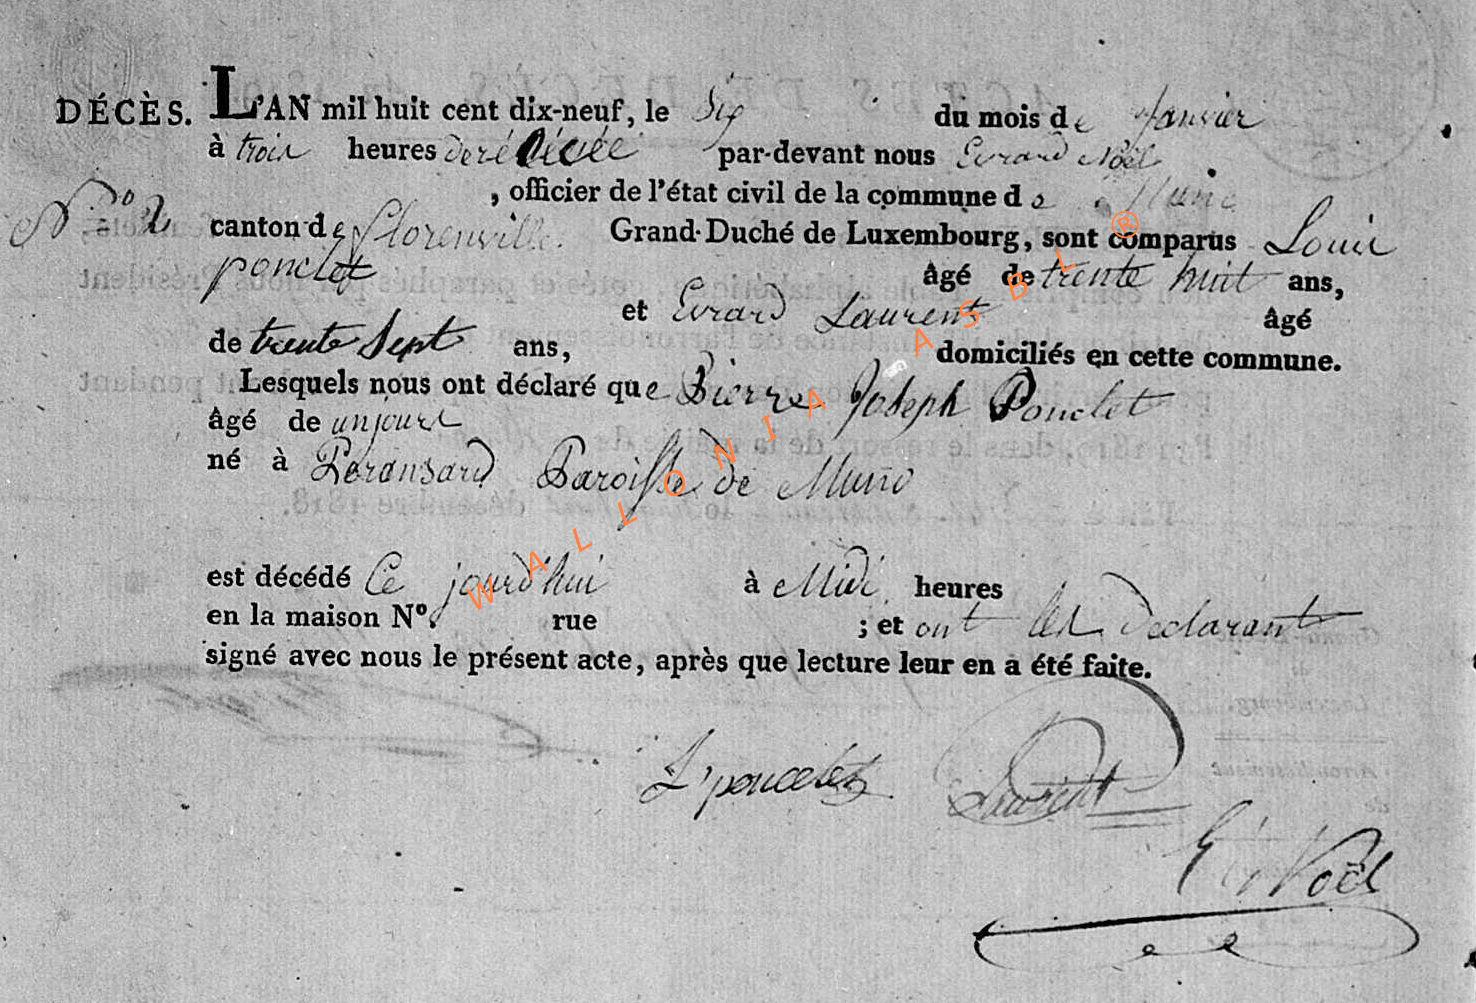 DÉCÈS. L'AN mil huit cent dix-neuf, le Six du mois de Janvier
à trois heures de par-devant nous Evrard Noël
N° 2 , officier de l'état civil de la commune de Muno
canton de Florenville. Grand-Duché de Luxembourg, sont comparus Louis
ponclet âgé de trente huit ans,
et Evrard Laurent âgé
de trente Sept ans, domiciliés en cette commune.
Lesquels nous ont déclaré que Pierre Joseph Ponclet
âgé de un jours
né à Paroisse de Muno
est décédé Ce jourd'hui à Midi heures
en la maison N°. rue ; et ont les declarant
signé avec nous le présent acte, après que lecture leur en a été faite.
L'poncelet Laurent
Noël
WALLONIA ASBL ®